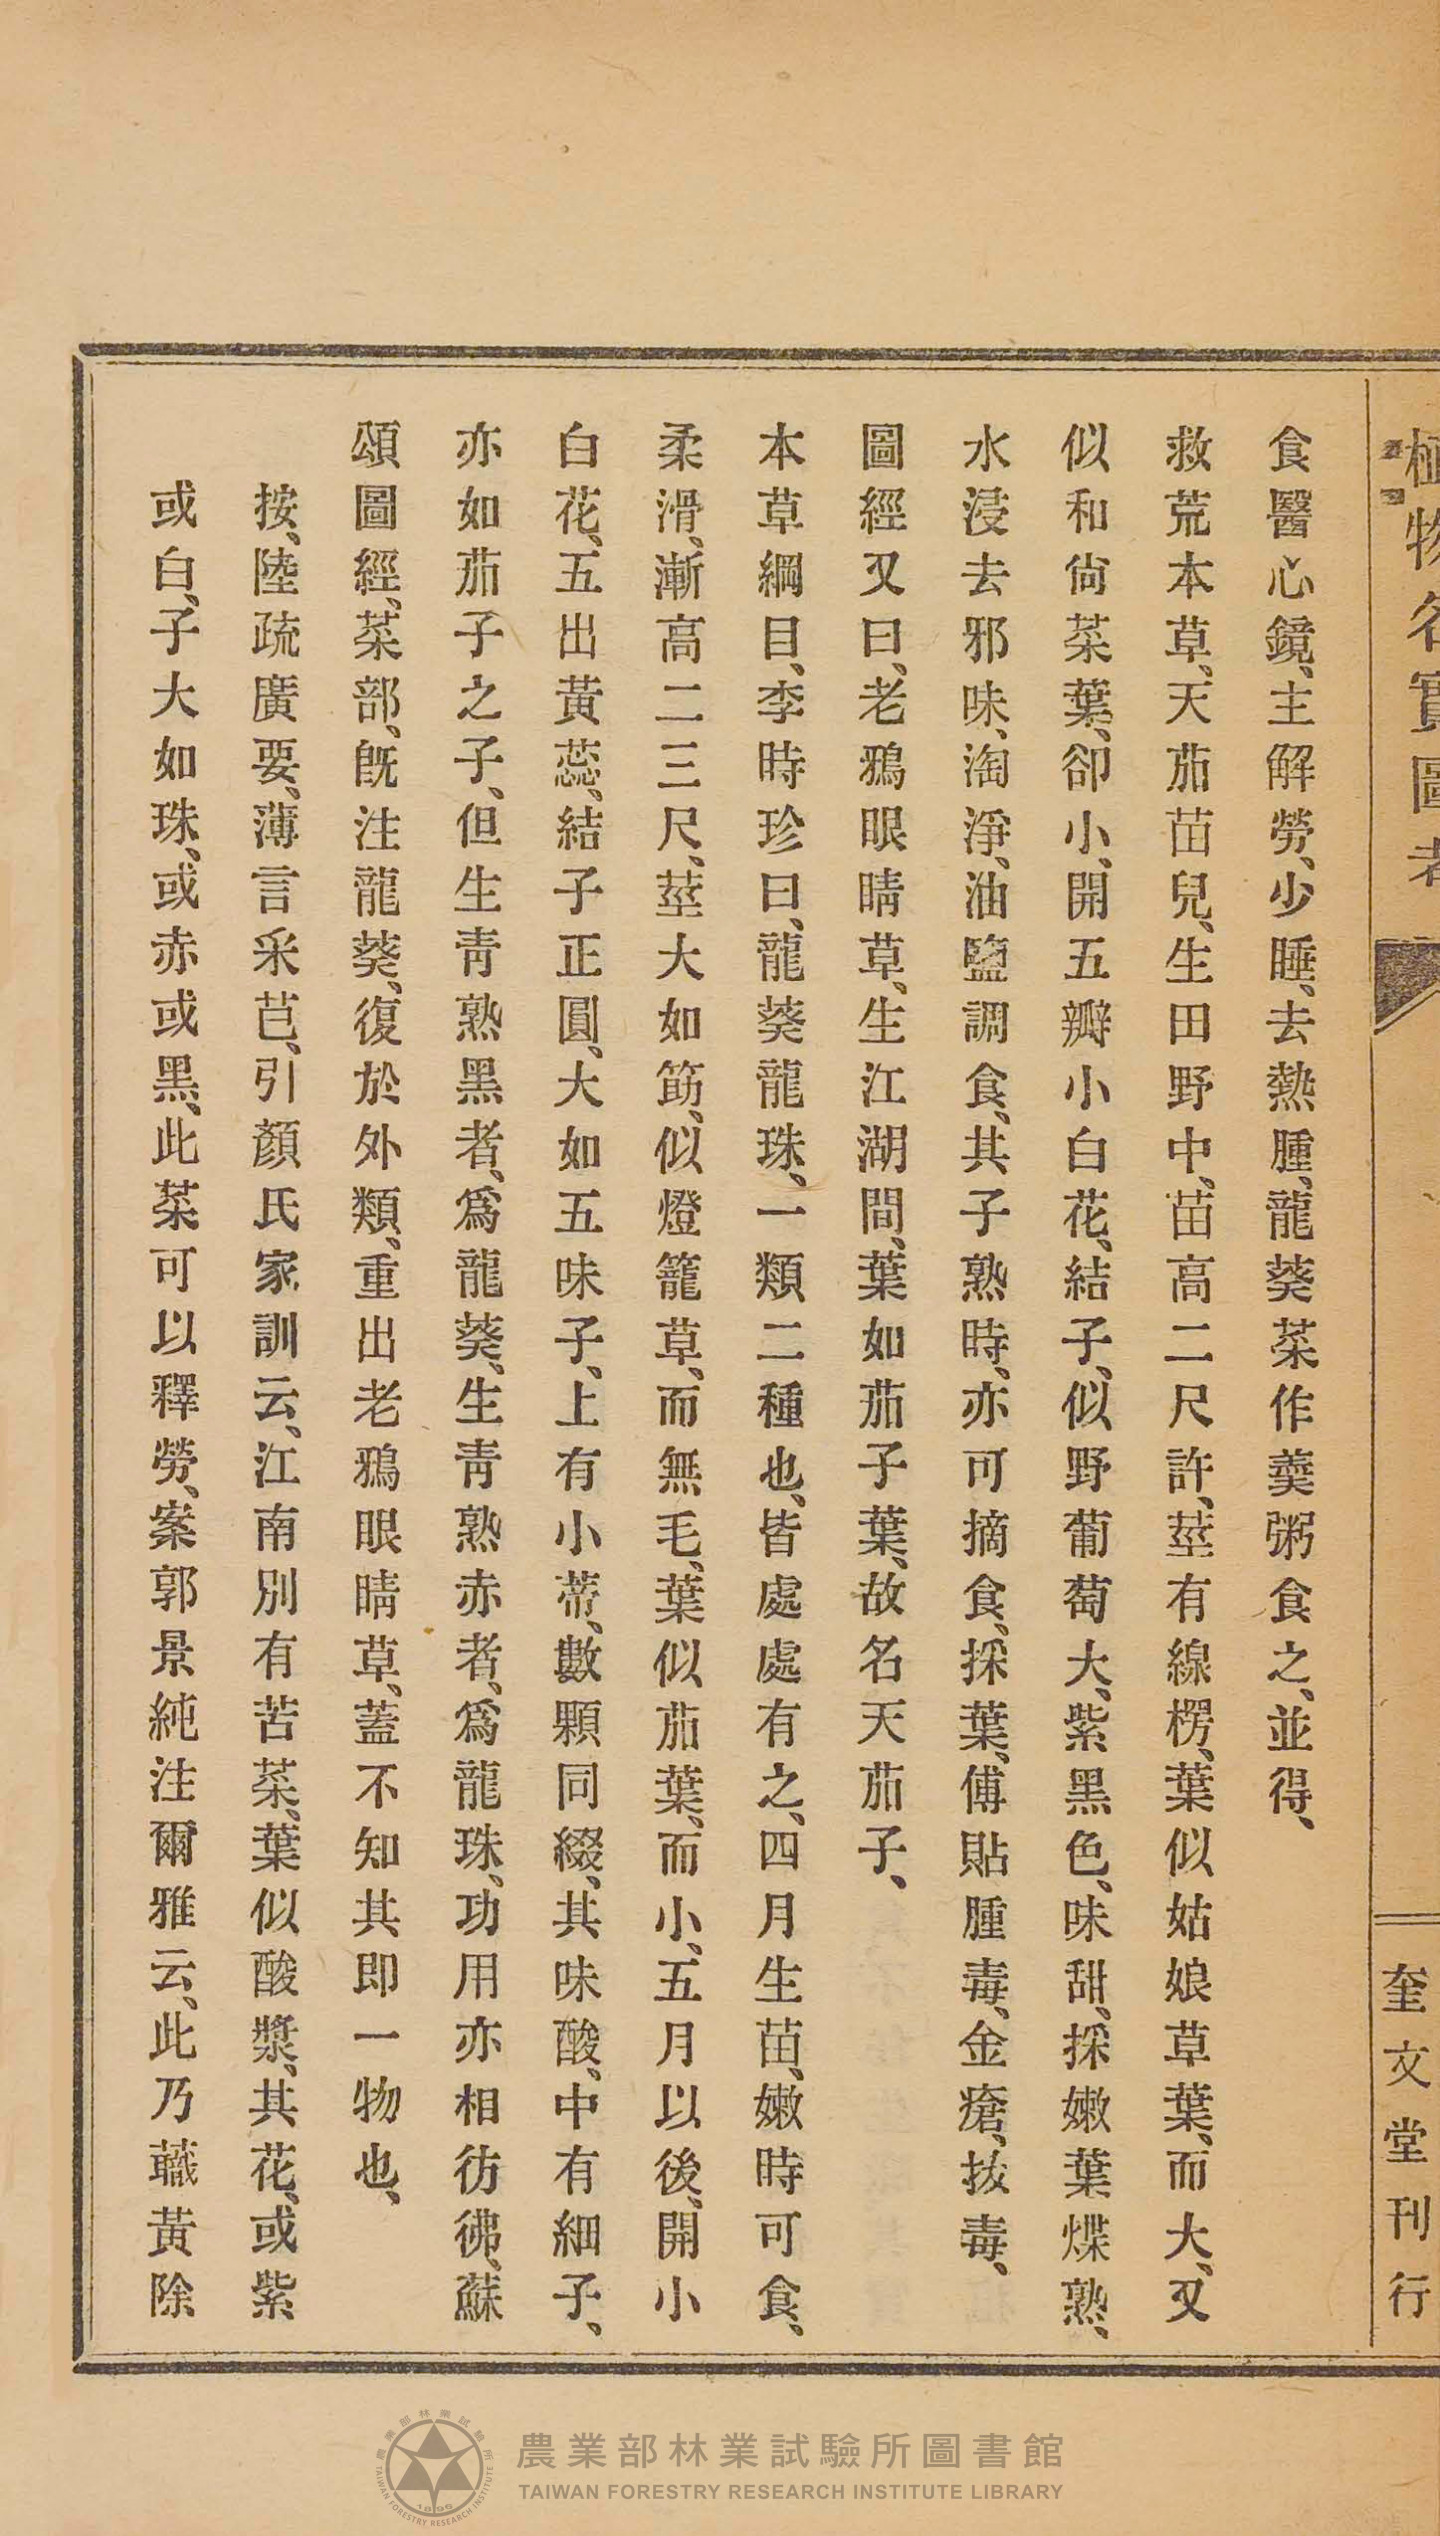 植物名實圖考
奎文堂刊行
食醫心鏡、主解勞、少睡、去熱腫、龍葵菜作羹粥食之、並得、
救荒本草、天茄苗兒、生田野中、苗高二尺許、莖有線楞、葉似姑娘草葉、而大、又
似和尙菜葉、卻小、開五瓣小白花、結子、似野葡萄大、紫黑色、味甜、採嫩葉煠熟、
水浸去邪味、淘淨、油鹽調食、其子熟時、亦可摘食、採葉、傅貼腫毒、金瘡、拔毒、
圖經又曰、老鴉眼睛草、生江湖間、葉如茄子葉、故名天茄子、
本草綱目、李時珍曰、龍葵龍珠、一類二種也、皆處處有之、四月生苗、嫩時可食、
柔滑、漸高二三尺、莖大如筯、似燈籠草、而無毛、葉似茄葉、而小、五月以後、開小
白花、五出黃蕊、結子正圓、大如五味子、上有小蒂、數顆同綴、其味酸、中有細子、
亦如茄子之子、但生靑熟黑者、爲龍葵、生靑熟赤者、爲龍珠、功用亦相彷彿、蘇
頌圖經、菜部、旣注龍葵、復於外類、重出老鴉眼睛草、蓋不知其卽一物也、
按、陸疏廣要、薄言采芑、引顏氏家訓云、江南別有苦菜、葉似酸漿、其花、或紫
或白、子大如珠、或赤或黑、此菜可以釋勞、案郭景純注爾雅云、此乃蘵黃除
農業部林業試驗所圖書館
TAIWAN FORESTRY RESEARCH INSTITUTE LIBRARY
農業部林業試驗所
TAIWAN FORESTRY RESEARCH INSTITUTE
1895